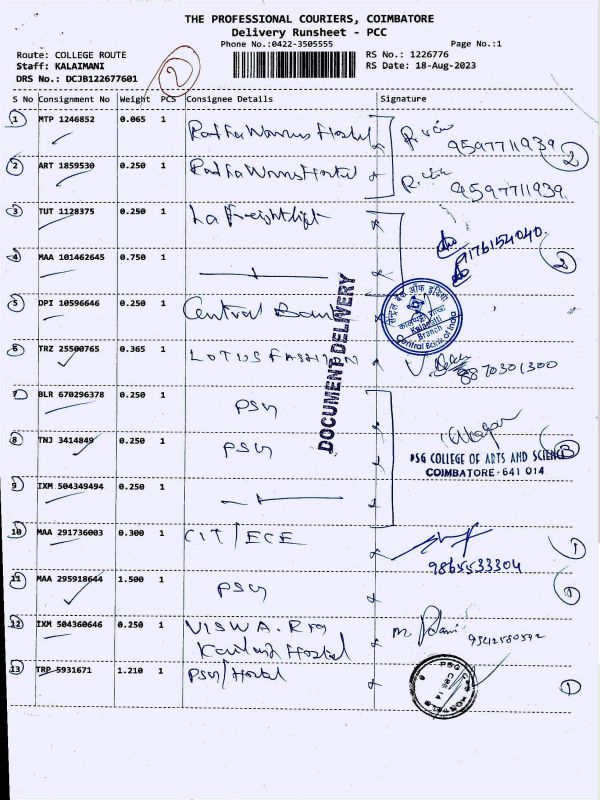 THE PROFESSIONAL COURIERS, COIMBATORE
Delivery Runsheet - PCC
Phone No.:0422-3505555
Page No.:1
Route: COLLEGE ROUTE
RS No.: 1226776
Staff: KALAIMANI
RS Date: 18-Aug-2023
DRS No.: DCJB122677601
2
S No Consignment No Weight PCS Consignee Details Signature
1 MTP 1246852 0.065 1 Hostel
9597711939 2
2 ART 1859530 0.250 1 Hostel
9597711939
3 TUT 1128375 0.250 1 La Freightlift
4 MAA 101462645 0.750 1
5 DPI 10596646 0.250 1 Central Bank
सेन्ट्रल बैंक ऑफ इंडिया
Kalapatti
Branch
Central Bank of India
DOCUMENT DELIVERY
6 TRZ 25500765 0.365 1 LOTUS FASHION
8870301300
7 BLR 670296378 0.250 1 PSG
8 TNJ 3414849 0.250 1 PSG
PSG COLLEGE OF ARTS AND SCIENCE
COIMBATORE - 641 014
9 IXM 504349494 0.250 1
10 MAA 291736003 0.300 1 CIT/ECE
9865533304 1
11 MAA 295918644 1.500 1 PSG
1
12 IXM 504360646 0.250 1 VISWA.
Hostel
13 TRP 5931671 1.210 1 PSG/Hostel
1